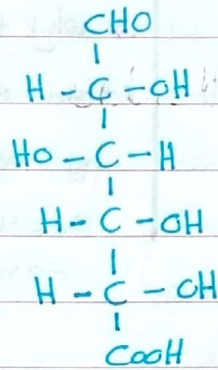 CHO
H - C - OH
HO - C - H
H - C - OH
H - C - OH
COOH